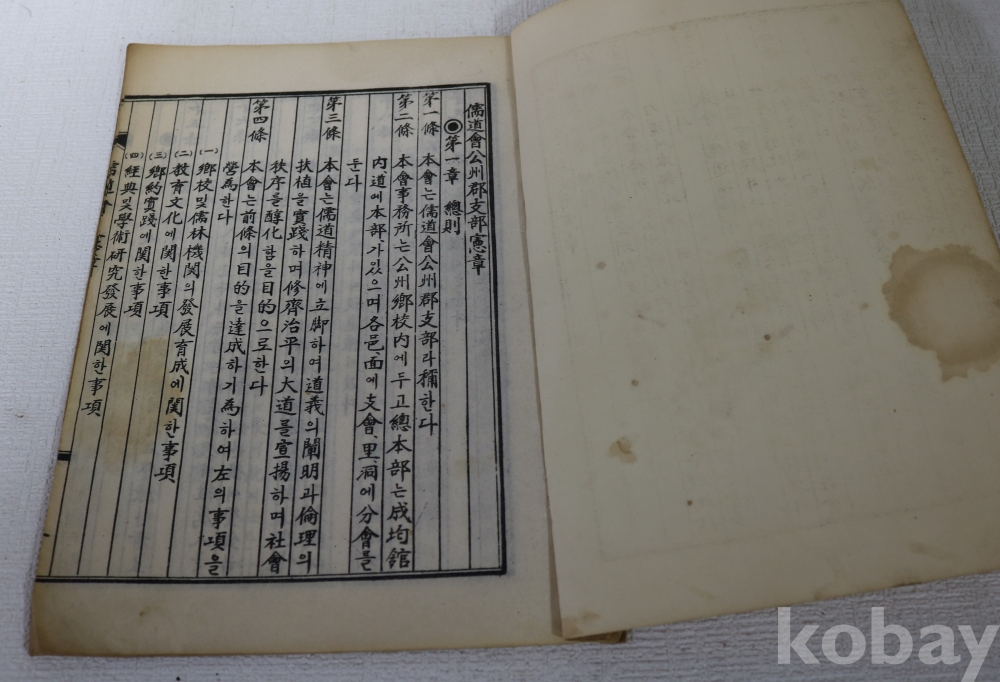 儒道會公州郡支部憲章
◉第一章 總則
第一條 本會는儒道會公州郡支部라稱한다
第二條 本會事務所는公州鄕校内에두고總本部는成均館
内、道에本部가있으며各邑、面에支會、里、洞에分會를
둔다
第三條 本會는儒道精神에立脚하여道義의闡明과倫理의
扶植을實踐하며修齊治平의大道를宣揚하며社會
秩序을醇化함을目的으로한다
第四條 本會는前條의目的을達成하기爲하여左의事項을
營爲한다
(一) 鄕校및儒林機関의發展育成에関한事項
(二) 敎育文化에関한事項
(三) 鄕約實踐에関한事項
(四) 經典및學術研究發展에関한事項
儒道會
kobay